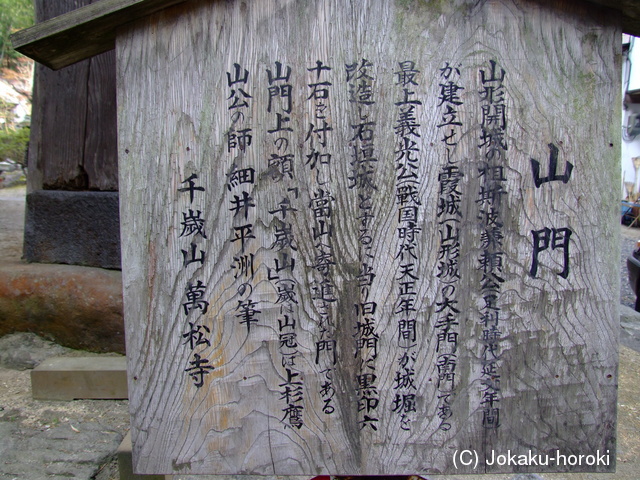 山門
山形開城の祖斯波兼頼公(足利時代延文年間)
が建立せし霞城(山形城)の大手門(南門)である
最上義光公(戦国時代天正年間)が城堀を
改造し石垣城とするに当り旧城門に黒印六
十石を付加し當山に寄進された門である
山門上の額「千歳山」(歳は山冠)は上杉鷹
山公の師 細井平洲の筆
千歳山 萬松寺
(C) Jokaku-horoki